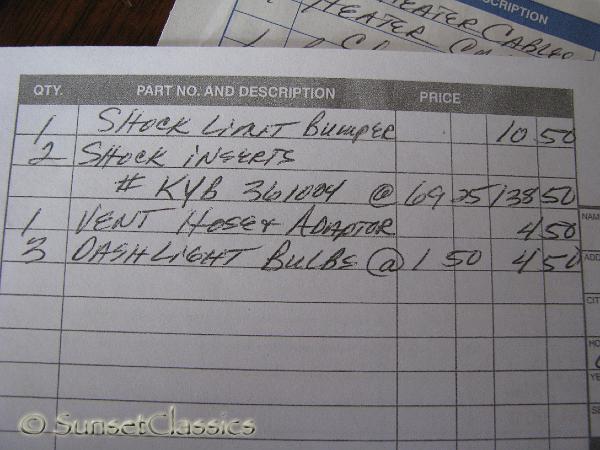 DESCRIPTION
HEATER CABLE
HEATER
1
QTY. PART NO. AND DESCRIPTION PRICE
1 SHOCK LIMIT BUMPER 10 50
2 SHOCK INSERTS
# KYB 361004 @ 69 25 138 50
1 VENT HOSE & ADAPTOR 4 50
3 DASH LIGHT BULBS @ 1 50 4 50
NAM
ADD
CIT
HO
YE
© SunsetClassics